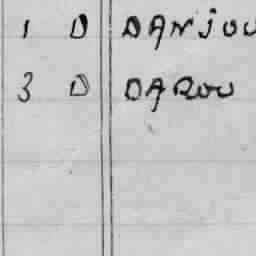 1 D DANJOU
3 D DAROU